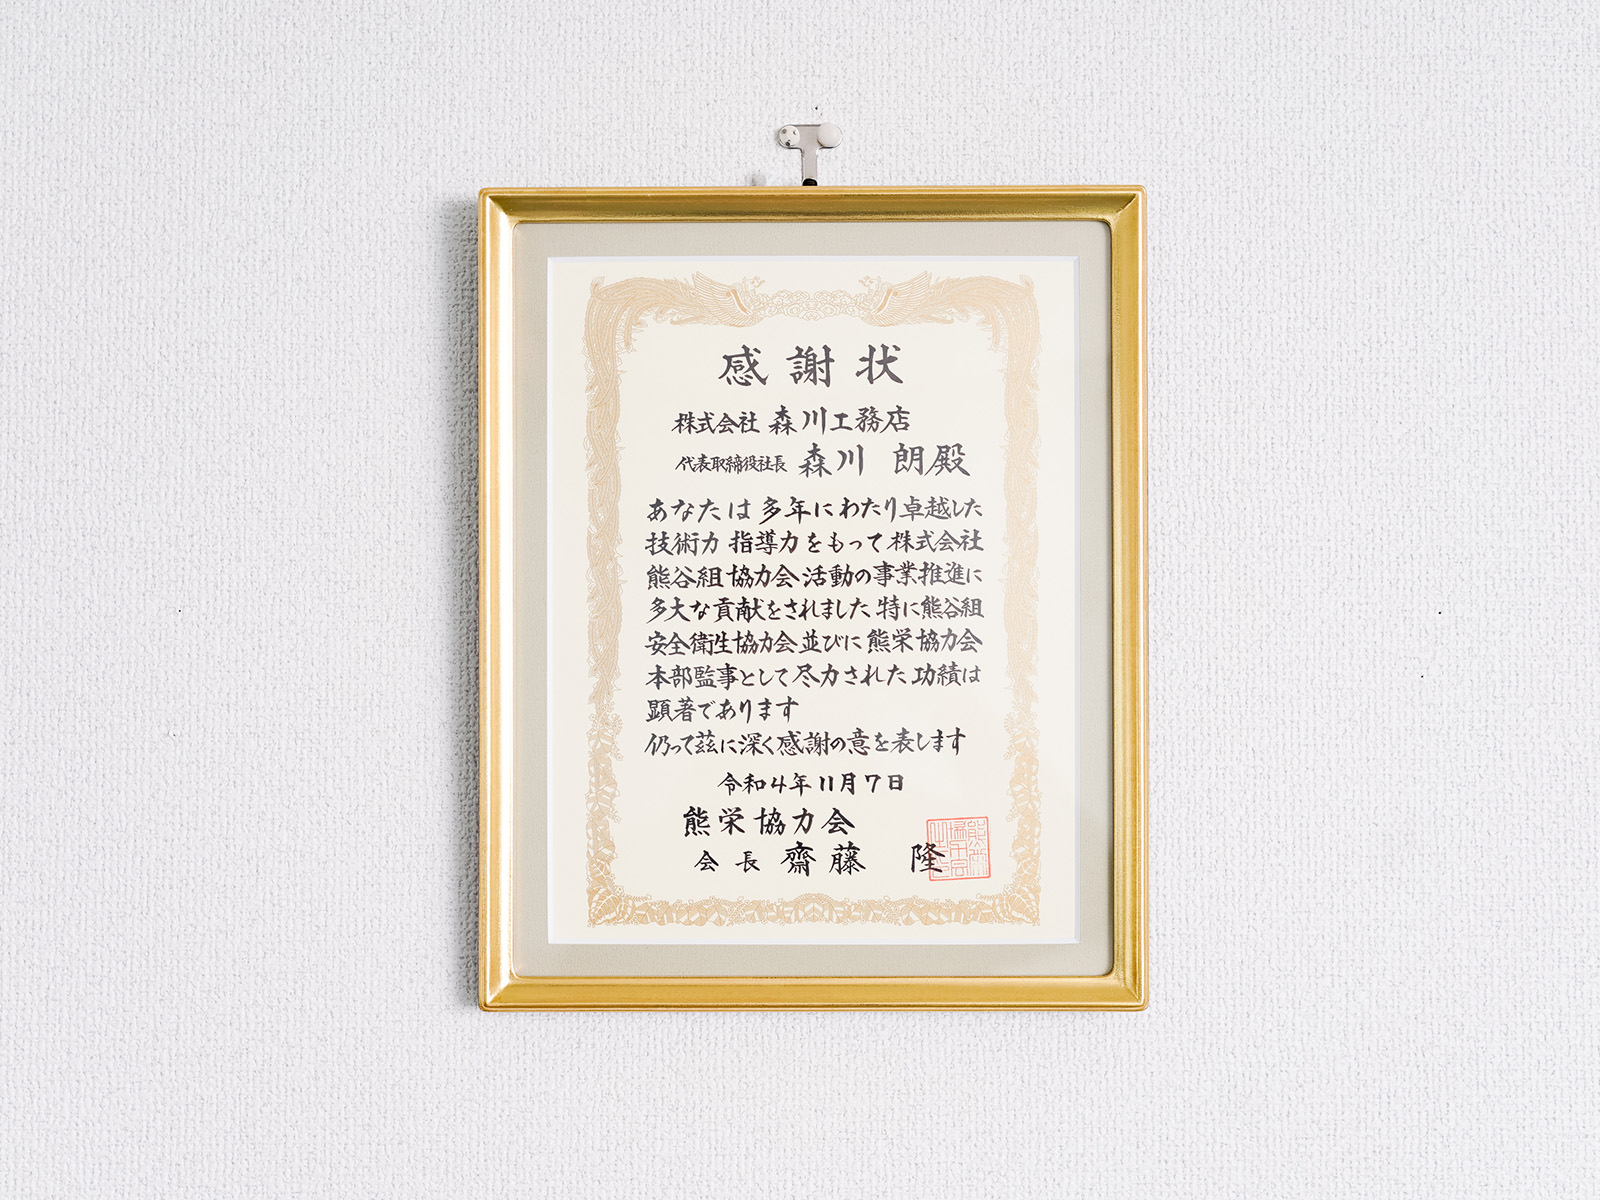 感謝状
株式会社 森川工務店
代表取締役社長 森川 朗殿
あなたは多年にわたり卓越した
技術力 指導力をもって株式会社
熊谷組協力会活動の事業推進に
多大な貢献をされました 特に熊谷組
安全衛生協力会並びに熊栄協力会
本部監事として尽力された功績は
顕著であります
仍って茲に深く感謝の意を表します
令和4年11月7日
熊栄協力会
会長 齋藤 隆